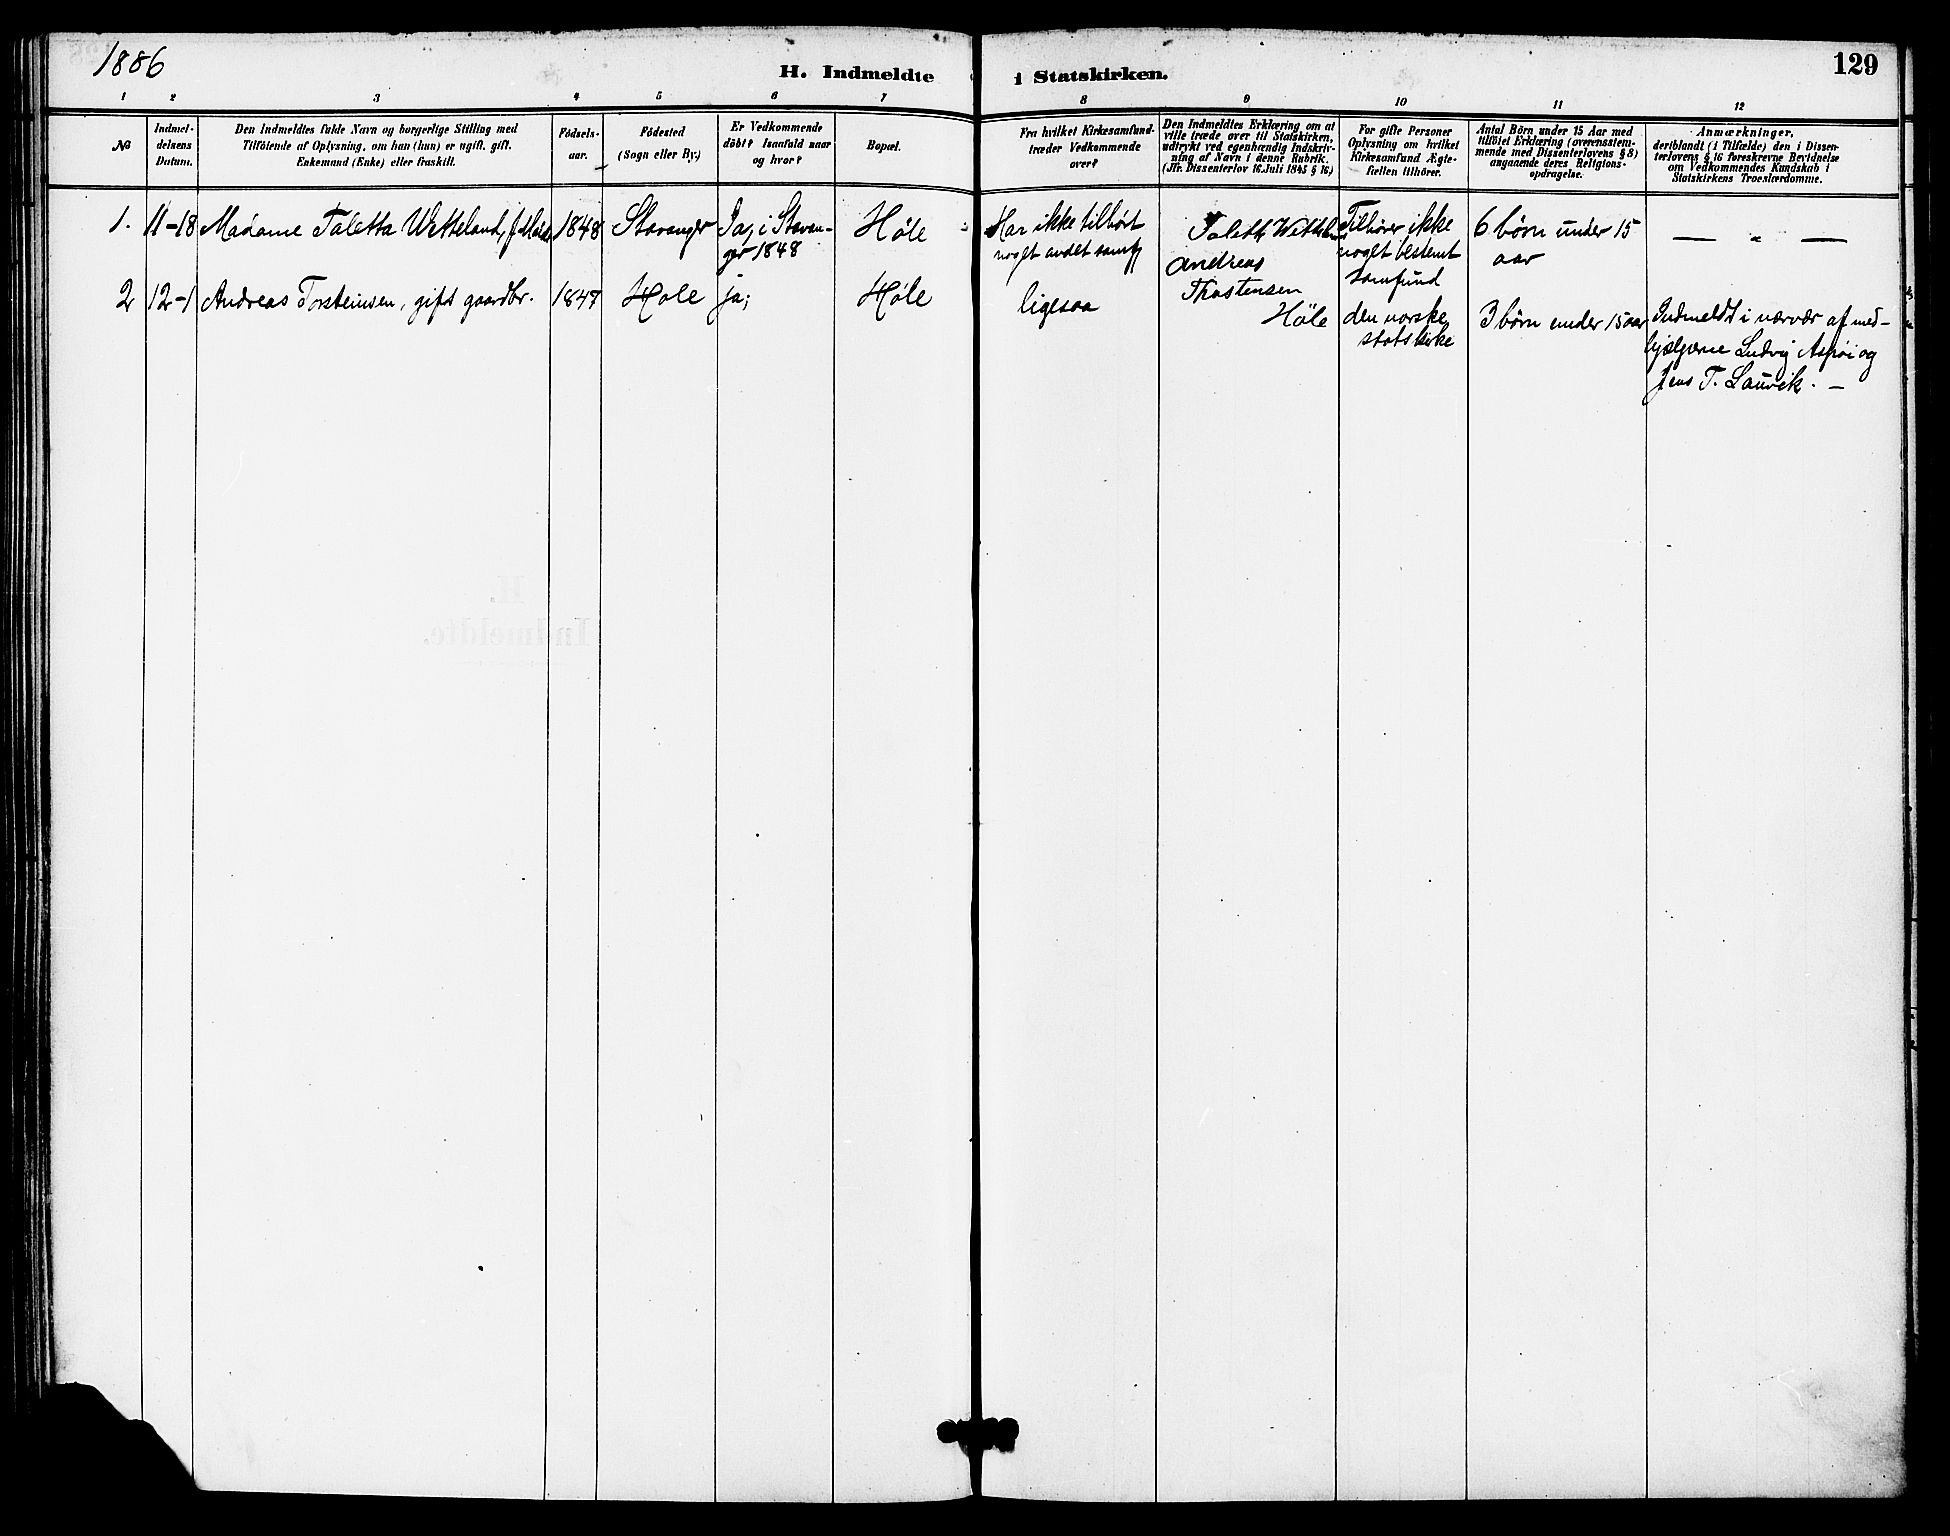 1886
H. Indmeldte i Statskirken.
129
1 2 3 4 5 6 7 8 9 10 11 12
№
Indmel-
delsens
Datum.
Den Indmeldtes fulde Navn og borgerlige Stilling med
Tilföiende af Oplysning, om han (hun) er ugift, gift,
Enkemand (Enke) eller fraskilt.
Födsels-
aar.
Födested
(Sogn eller By.)
Er Vedkommende
döbt? Isaafald naar
og hvor?
Bopæl.
Fra hvilket Kirkesamfund
træder Vedkommende
over?
Den Indmeldtes Erklæring om at
ville træde over til Statskirken,
udtrykt ved egenhændig Indskriv-
ning af Navn i denne Rubrik.
(Jfr. Dissenterlov 16. Juli 1845 § 16.)
For gifte Personer
Oplysning om hvilket
Kirkesamfund Ægte-
fællen tilhörer.
Antal Börn under 15 Aar med
tilföiet Erklæring (overensstem-
mende med Dissenterlovens § 8)
angaaende deres Religions-
opdragelse.
Anmærkninger,
deriblandt (i Tilfælde) den i Dissen-
terlovens § 16 foreskrevne Bevidnelse
om Vedkommendes Kundskab i
Statskirkens Troeslærdomme.
1.
11-18
Madame Taletta Wetteland,
1848
Stavanger
Ja, i Stavan-
ger 1848
Høle
Har ikke tilhørt
noget andet samf
Andreas
Thostensen
Høle
Tilhører ikke
noget bestemt
samfund
6 børn under 15
aar
— " —
2
12-1
Andreas Torsteinsen, gift gaardbr.
1847
Hole
ja;
Høle
ligesaa
den norske
statskirke
3 børn under 15 aar
Indmeldt i nærvær af med-
hjælperne Ludvig Aspøi og
Jens T. Lauvik. —